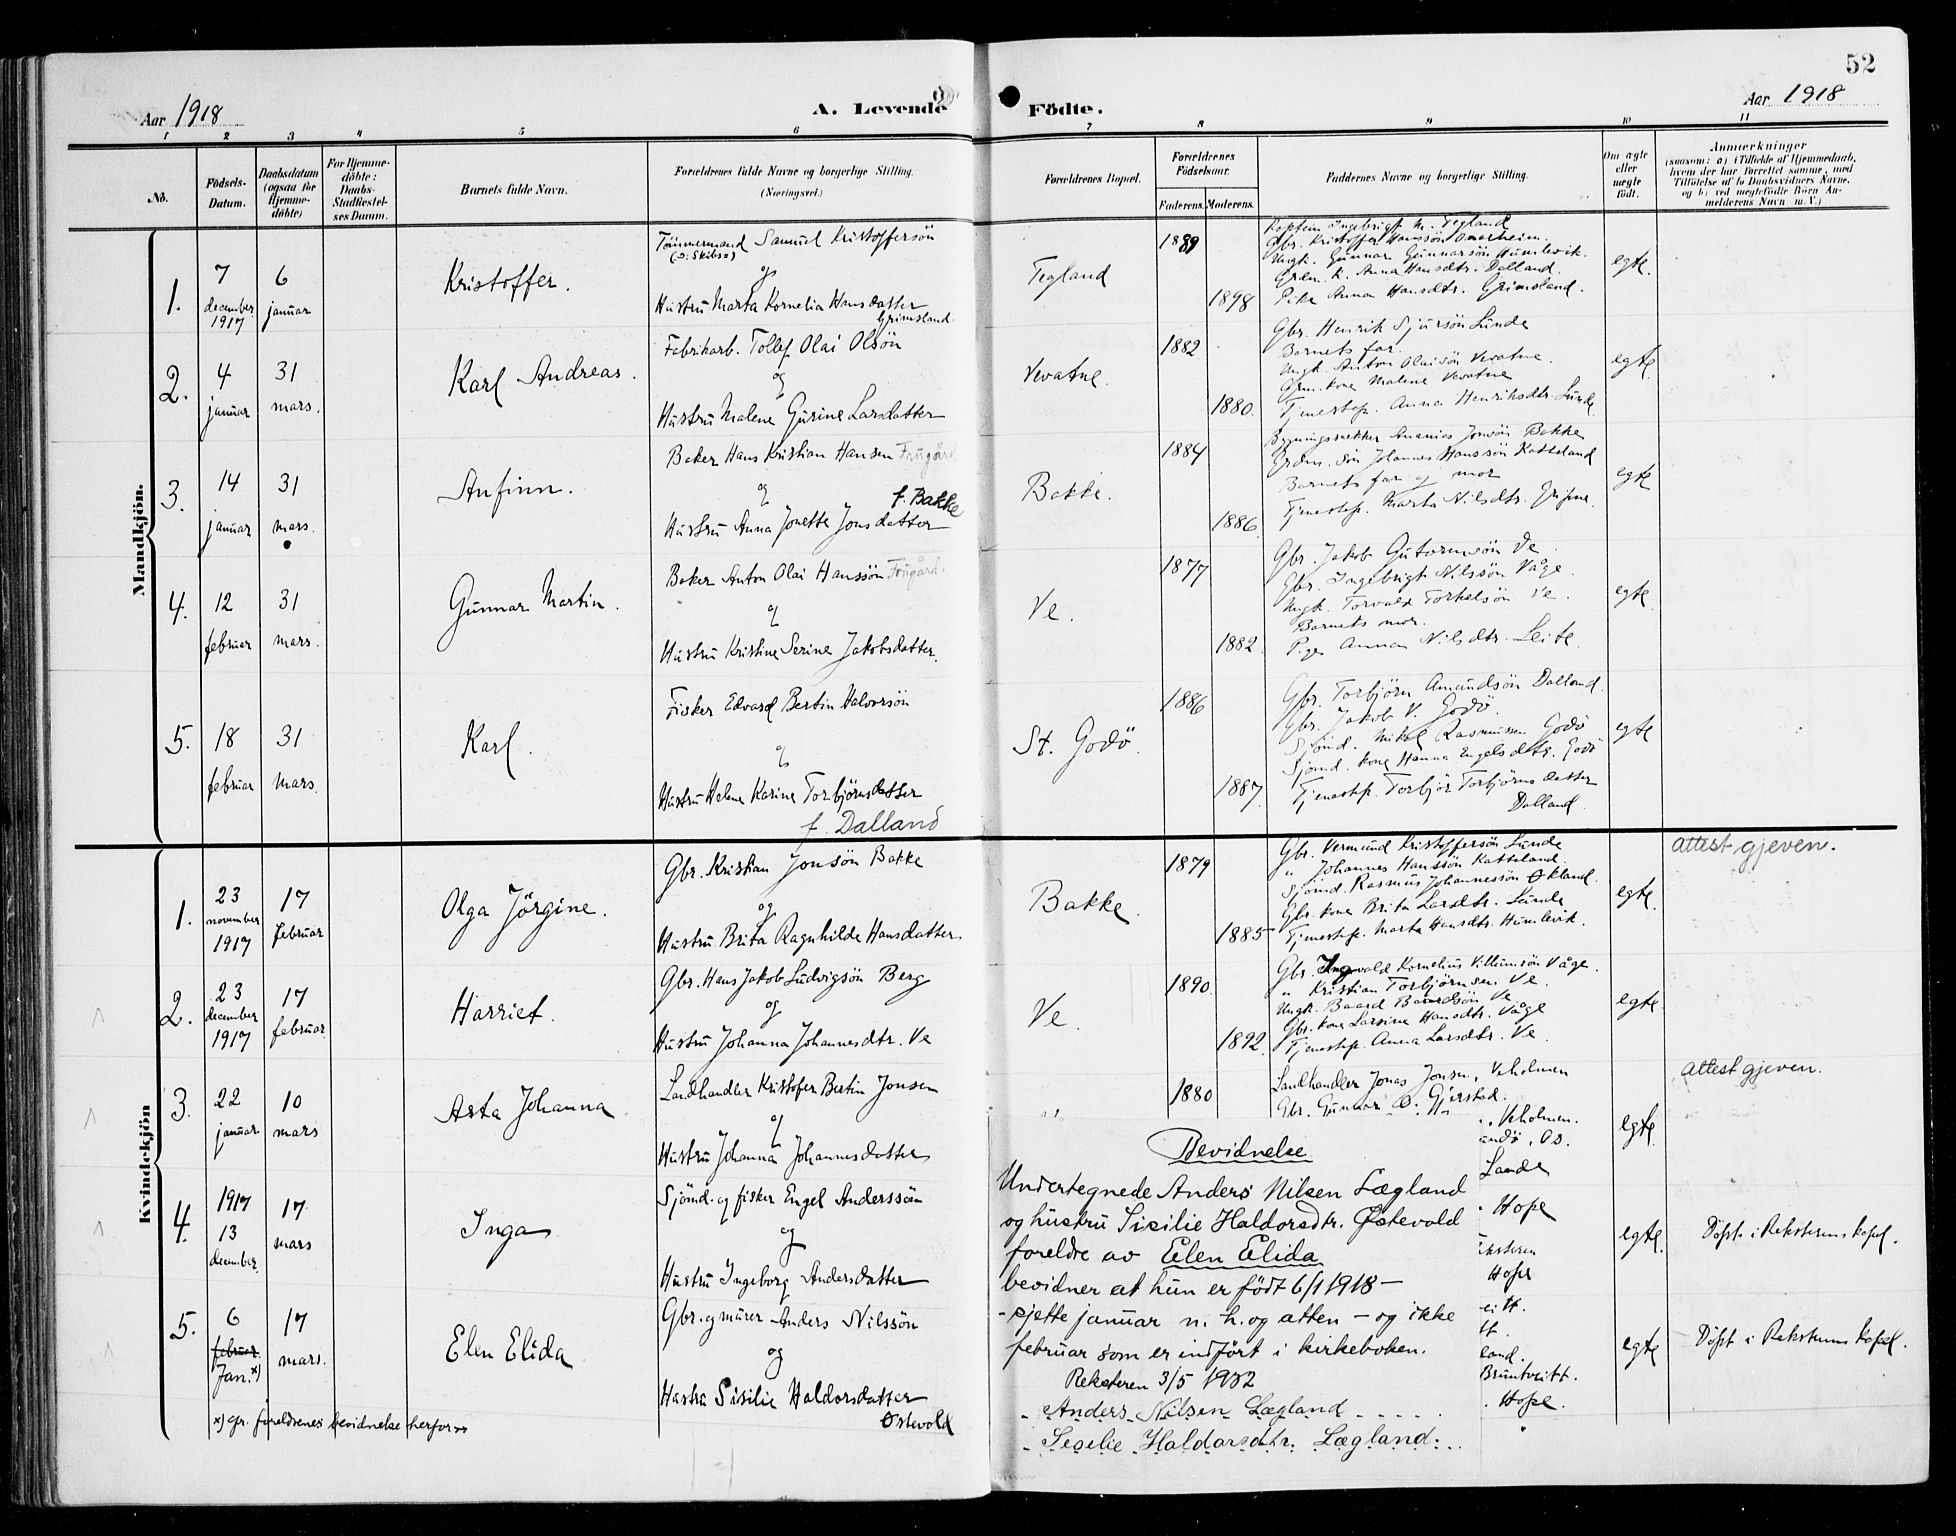 52
Aar 1918
A. Levende Födte.
Aar 1918
1 2 3 4 5 6 7 8 9 10 11
No.
Födsels-Datum.
Daabsdatum (ogsaa for Hjemme-döbte)
For Hjemme-döbte: Daabs-Stadfæstel-ses Datum.
Barnets fulde Navn.
Forældrenes fulde Navne og borgerlige Stilling. (Næringsvei.)
Forældrenes Bopæl.
Forældrenes Födselsaar.
Faderens. Moderens.
Faddernes Navne og borgerlige Stilling.
Om ægte eller uægte födt.
Anmerkninger
(saasom: a) i Tilfælde af Hjemmedaab, hvem der har forrettet samme, med Tilföielse af to Daabsvidners Navne, og b) ved uegtefödte Börn An-melderens Navn m. V.)
Mandkjön.
1. 7 december 1917
6 januar
Kristoffer.
Tömmermand Samuel Kristoffersön
(ɔ: Skibs=)
og
Hustru Marta Kornelia Hansdatter
Grimsland.
Tegland
1889
1898
Ingebrigt M. Tegland
Gbr. Kristoffer Hanssön
Ungk. Gunnar Gunnarsön Humlevik.
k. Anna Hansdtr. Dalland.
Pike Anna Hansdtr. Grimsland.
egte.
2. 4 januar
31 mars.
Karl Andreas.
Fabrikarb. Tollef Olai Olsön
og
Hustru Malene Gurine Larsdatter
Vevatne.
1882
1880.
Gbr. Henrik Sjursön Lunde
Barnets far.
Ungk. Anton Olaisön Vevatne.
kone Malene Vevatne
Tjenestep. Anna Henriksdtr. Lunde
egte
3. 14 januar
31 mars.
Anfinn.
Baker Hans Kristian Hansen Frugård
og
f. Bakke
Hustru Anna Jonette Jonsdatter
Bakke.
1884
1886
Bygningssnekker Ananias Jonsön Bakke
sön Johannes Hanssön Katteland
Barnets far og mor
Tjenestep. Marta Nilsdtr.
egte
4. 12 februar
31 mars.
Gunnar Martin.
Baker Anton Olai Hanssön Frugård.
og
Hustru Kristine Serine Jakobsdatter.
Ve.
1877
1882.
Gbr. Jakob Gutormsön Ve.
Gbr. Ingebrigt Nilssön Våge.
Ungk. Torvald Torkelsön Ve.
Barnets mor.
Pige Anna Nilsdtr. Leite.
egte
5. 18 februar
31 mars.
Karl.
Fisker Edvard Bertin Halvorsön
og
Hustru Helene Karine Torbjörnsdatter
f. Dalland
St. Godö.
1886
1887.
Gbr. Torbjörn Amundsön Dalland.
Gbr. Jakob V. Godö.
Sjömd. Mikal Rasmussen Godö
Sjömd. kone Hanna Engelsdtr. Godö
Tjenestep. Torbjör Torbjörnsdatter
Dalland.
egte
Kvindekjön
1. 23 november 1917
17 februar
Olga Jörgine.
Gbr. Kristian Jonsön Bakke
og
Hustru Brita Ragnhilde Hansdatter.
Bakke.
1879
1885
Gbr. Vermund Kristoffersön Lunde
" Johannes Hanssön Katteland.
Sjömd. Rasmus Johannessön Økland.
Gbr. kone Brita Larsdtr. Lunde
Tjenestep. Marta Hansdtr. Humlevik.
egte.
attest gjeven.
2. 23 december 1917
17 februar.
Harriet.
Gbr. Hans Jakob Ludvigsön Berg
og
Hustru Johanna Johannesdtr. Ve
Ve.
1890.
1892.
Gbr. Ingvald Kornelius Villumsön Våge.
" Kristian Torbjörnsen Ve.
Ungk. Baard Baardsön Ve
Gbr. kone Larsine Hansdtr. Våge
Tjenestep. Anna Larsdtr. Ve.
egte
3. 22 januar
10 mars
Asta Johanna
Landhandler Kristofer Bertin Jonsen
og
Hustru Johanna Johannesdatter
1880
Landhandler Jonas Jonsen, Veholmen
Gbr. Gunnar O. Gjerstad.
Veholmen.
Os.
egte.
attest gjeven.
4. 1917 13 december.
17 mars
Inga
Sjömd. og fisker Engel Anderssön
og
Hustru Ingeborg Andersdatter
Hope
egte.
Döpt i Reksteren kapel.
5. 6 februar. Jan. x)
17 mars.
Elen Elida
Gbr. og murer Anders Nilssön
og
Hustru Sisilie Haldorsdatter
Østevold
Hope
land.
Bruntveitt.
Hope.
egte
Döpt i Reksteren kapel.
x) gr. foreldrenes bevidnelse herfor
Bevidnelse
Undertegnede Anders Nilsen Lægland
og hustru Sisilie Haldorsdtr. Østevold
foreldre av Elen Elida
bevidner at hun er født 6/1 1918 —
- sjette januar n. h. og atten — og ikke
februar som er indfört i kirkeboken.
Reksteren 3/5 1932
Anders Nilsen Lægland
Sesilie Haldorsdtr. Lægland.